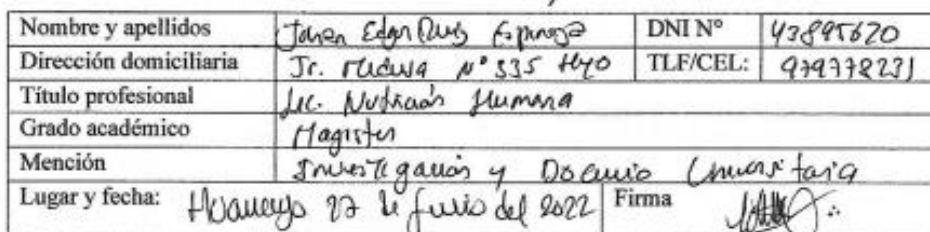 Nombre y apellidos Edgar Ruiz Espinoza DNI N° 43895620
Dirección domiciliaria Jr. N° 335 Hyo TLF/CEL: 979778231
Título profesional Lic. Nutrición Humana
Grado académico Magister
Mención Investigación y Docencia Universitaria
Lugar y fecha: Huancayo 27 de junio del 2022 Firma